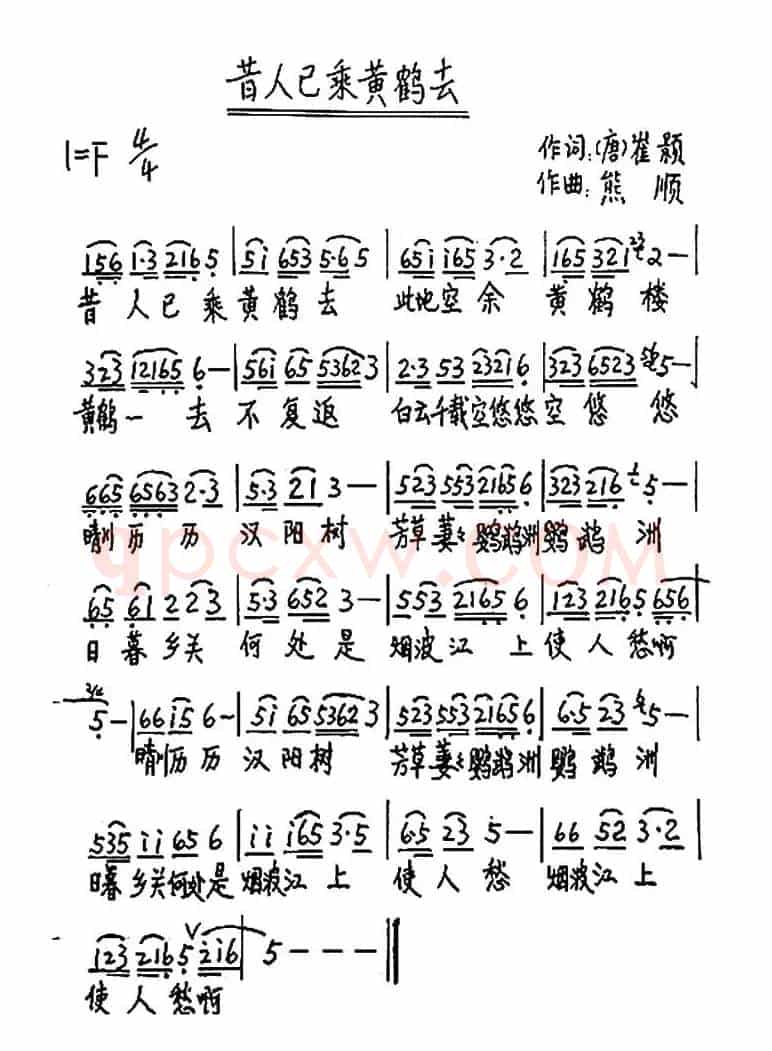 昔人已乘黄鹤去
1=F 4/4
作词:(唐)崔颢
作曲:熊 顺
156 1·3 2165 | 5i 653 5·65 | 65i i65 3·2 | 165 321 23 2— |
昔人已乘黄鹤去 此地空余 黄鹤楼
323 12165 6— | 561 65 53623 | 2·3 53 23216 | 323 6523 5— |
黄鹤一去不复返 白云千载空悠悠空悠悠
665 6563 2·3 | 5·3 21 3— | 523 553 21656 | 323 216 5— |
晴川历历 汉阳树 芳草萋萋鹦鹉洲鹦鹉洲
qpcxw.COM
65 61 223 | 5·3 652 3— | 553 2165 6 | 123 2165 656 |
日暮乡关 何处是 烟波江上使人愁啊
5— | 66 i5 6— | 5i 65 53623 | 523 553 21656 | 6·5 2·3 5— |
晴川历历 汉阳树 芳草萋萋鹦鹉洲 鹦鹉洲
535 ii 65 6 | ii i65 3·5 | 6·5 23 5— | 66 52 3·2 |
日暮乡关何处是 烟波江上 使人愁 烟波江上
123 2165 V 2i6 | 5 — — — ‖
使人愁啊